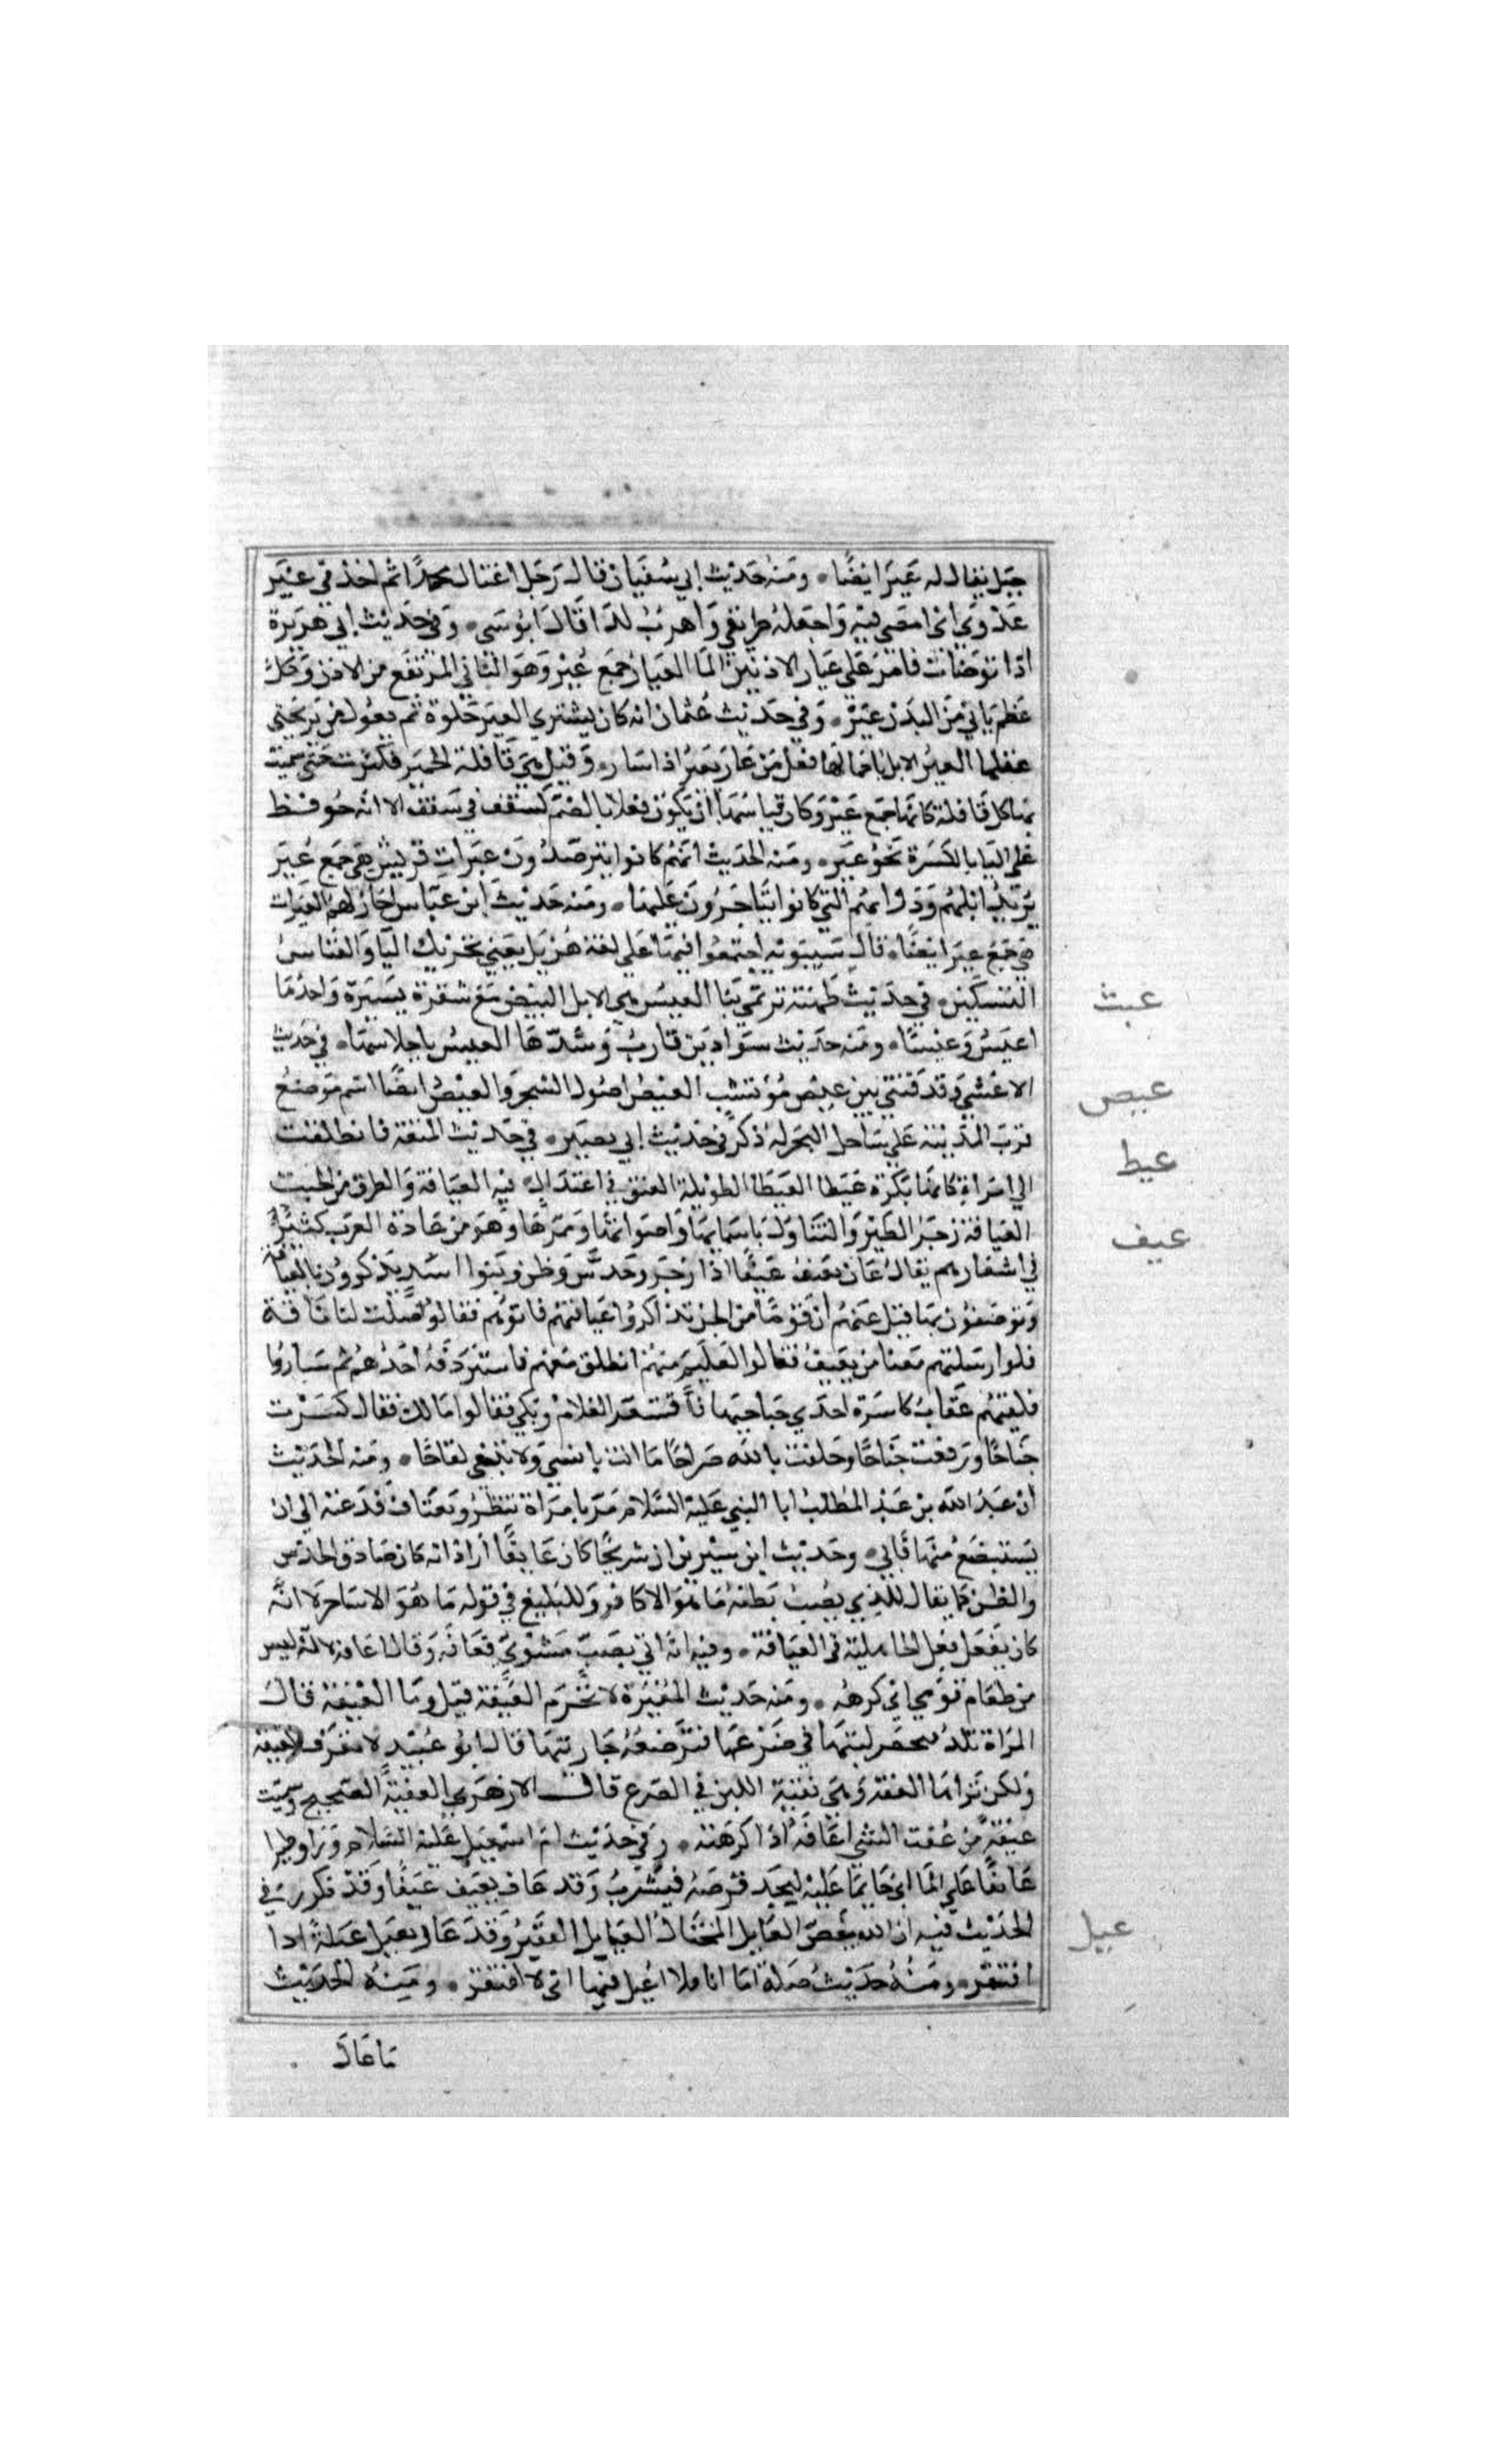 جبل يقال له عير ايضا ومنه حديث ابي سفيان قال رجل اغتال محمدا ثم اخذ في عير
عدوي اي امضي فيه واجعله طريقي واهرب لذا قال ابو موسى وفي حديث ابي هريرة
اذا توضات فامر على عيار الاذنين الما العيار جمع عير وهو الناتي المرتفع من الاذن وكل
عظم ناتي من البدن عير وفي حديث عثمان انه كان يشتري العير حلوة ثم يقول من يربحني
عقلها العير الابل باحمالها فعل من عار يعير اذا سار وقيل هي قافلة الحمير فكثرت حتى سميت
بها كل قافلة كانها جمع عير وكان قياسها ان تكون فعلا بالضم كسقف في سقف الا انه حوفظ
على اليا بالكسرة نحو عير ومنه الحديث انهم كانوا يترصدون عيرات قريش هي جمع عير
يريد ابلهم ودوابهم التي كانوا يتاجرون عليها ومنه حديث ابن عباس اجاز لهم العيرات
هي جمع عير ايضا قال سيبويه اجتمعوا فيها على لغة هذيل يعني تحريك اليا والقياس
التسكين في حديث طهفة ترتمي بنا العيس هي الابل البيض مع شقرة يسيرة واحدها
اعيس وعيسا ومنه حديث سواد بن قارب وشدها العيس باحلاسها في حديث
الاعشى وقذفتني بين عيص مؤتشب العيص اصول الشجر والعيص ايضا اسم موضع
قرب المدينة على ساحل البحر له ذكر في حديث ابي بصير في حديث المتعة فانطلقت
الي امراة كانها بكرة عيطا العيطا الطويلة العنق في اعتدال فيه العيافة والطرق من الجبت
العيافة زجر الطير والتفاول باسمايها واصواتها وممرها وهو من عادة العرب كثيرا
في اشعارهم يقال عاف يعيف عيفا اذا زجر وحدس وظن وبنوا اسد يذكرون بالعيافة
ويوصفون بها قيل عنهم ان قوما من الجن تذاكروا عيافتهم فاتوهم فقالوا ضلت لنا ناقة
فلوا رسلتم معنا من يعيف فقالوا لغليم منهم انطلق معهم فاستردفه احدهم ثم ساروا
فلقيتهم عقاب كاسرة احدي جناحيها فاقشعر الغلام وبكي فقالوا مالك فقال كسرت
جناحا ورفعت جناحا وحلفت بالله صراحا ما انت بانسي ولا تبغي لقاحا ومنه الحديث
ان عبد الله بن عبد المطلب ابا النبي عليه السلام مر بامراة تنظر وتعتاف فدعته الى ان
يستبضع منها فابي وحديث ابن سيرين ان شريحا كان عايفا اراد انه كان صادق الحدس
والظن كما يقال للذي يصيب بظنه ما هو الا كاهن وللبليغ في قوله ما هو الا ساحر لا انه
كان يفعل فعل الجاهلية في العيافة وفيه انه اتي بضب مشوي فعافه وقال اعافه لانه ليس
من طعام قومي اي كرهه ومنه حديث المغيرة لا تحرم العيفة قيل وما العيفة قال
المراة تلد فيحصر لبنها في ضرعها فترضعه جارتها قال ابو عبيد لا نعرف العيفة
ولكن نراها العفة وهي بقية اللبن في الضرع قال الازهري العيفة الصحيح وسميت
عيفة من عفت الشي اعافه اذا كرهته وفي حديث ام اسمعيل عليه السلام وراوا طيرا
عايفا على الما اي حايما عليه ليجد فرصة فيشرب وقد عاف يعيف عيفا وقد تكرر في
الحديث فيه ان الله يبغض العايل المختال العايل الفقير وقد عال يعيل عيلة اذا
افتقر ومنه حديث صلة اما انا فلا اعيل فيها اي لا افتقر ومنه الحديث
ما عال
عبث
عيص
عيط
عيف
عيل